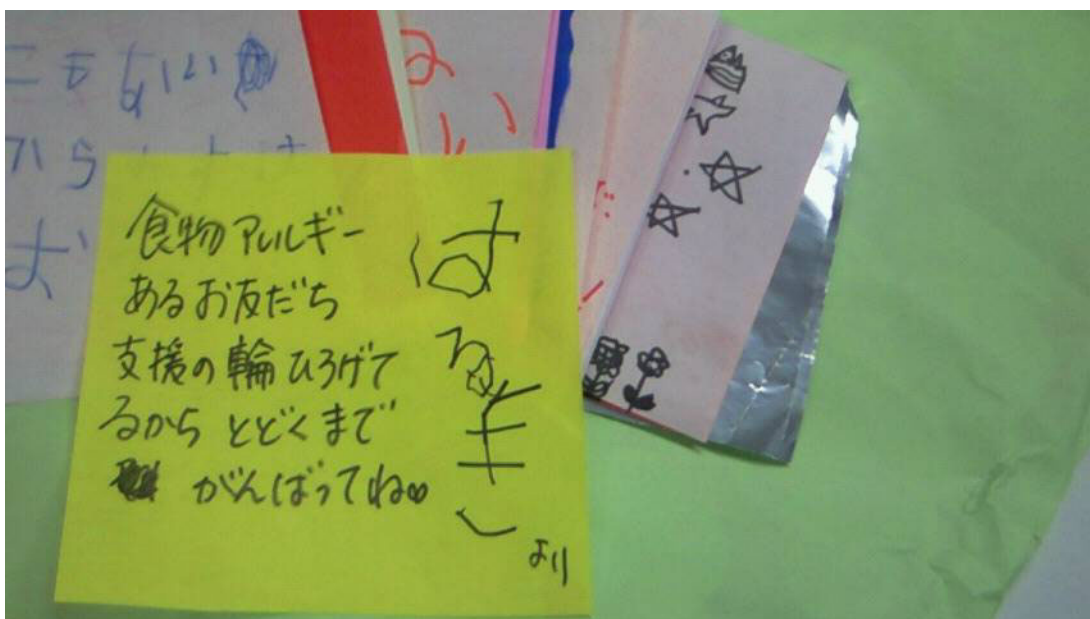 こもない
から
お
食物アルルギー
あるお友だち
支援の輪ひろげて
るから とどくまで
がんばってね∞
はるき
より